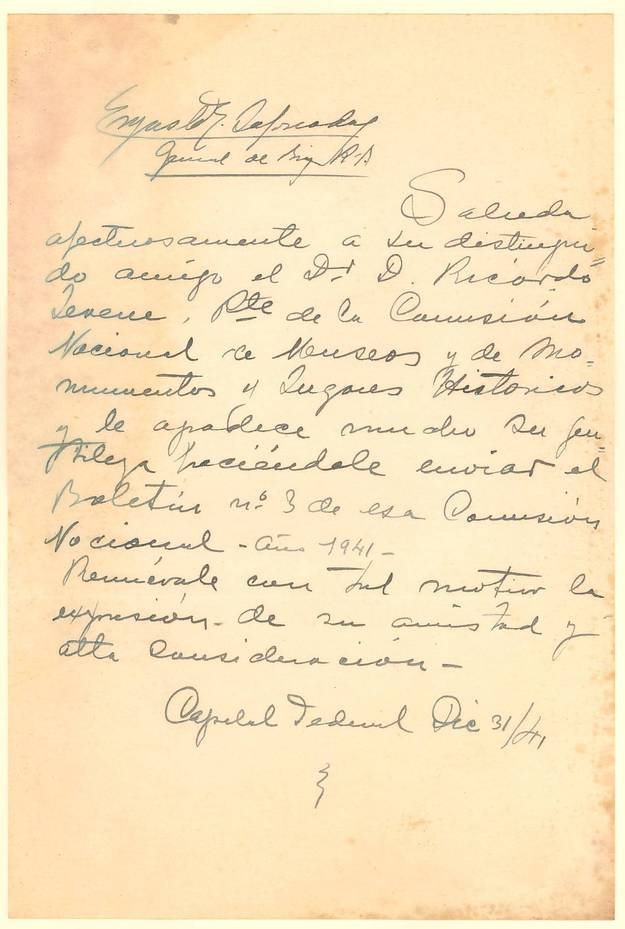 General de Brig R-A
Saluda
afectuosamente a su distingui-
do amigo el Dr D. Ricardo
Levene, Pte de la Comisión
Nacional de Museos y de Mo-
numentos y Lugares Historicos
y le agradece mucho su gen-
tileza haciéndole enviar el
Boletín nº 3 de esa Comisión
Nacional - año 1941 -
Renuévale con tal motivo la
expresión de su amistad y
alta consideración -
Capital Federal Dic 31/41